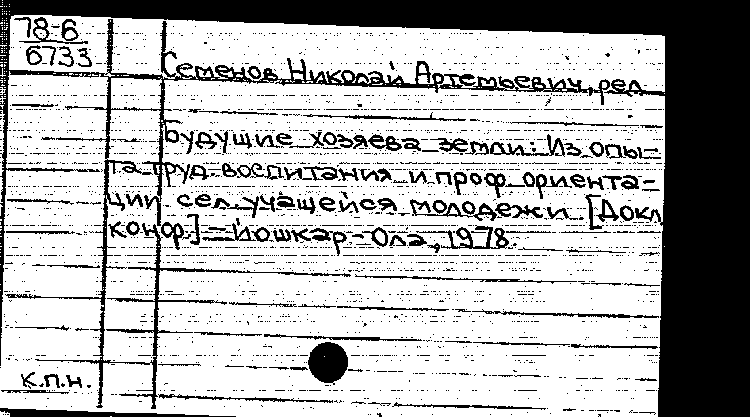 78-6
6733
Семенов, Николай Артемьевич, рел.
Будущие хозяева земли: Из опы-
та труд. воспитания и проф. ориента-
ции сел. учащейся молодежи. [Докл.
конф.] - Йошкар-Ола, 1978.
к.п.н.